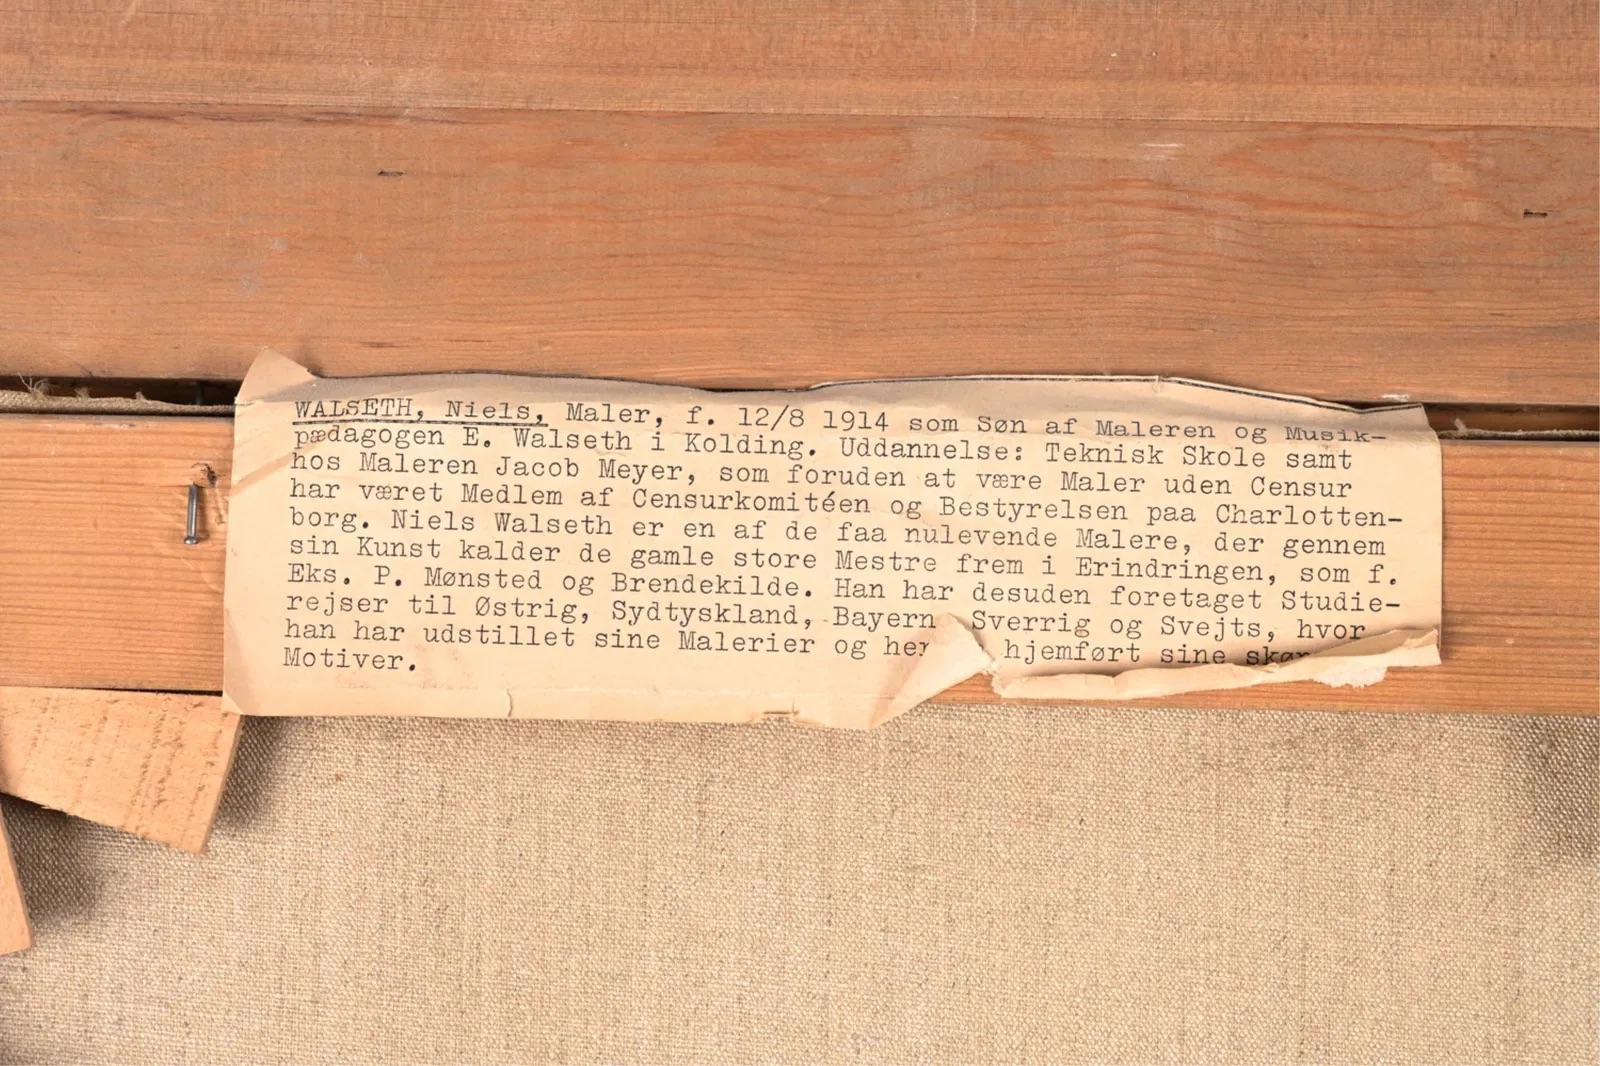 WALSETH, Niels, Maler, f. 12/8 1914 som Søn af Maleren og Musik-
pædagogen E. Walseth i Kolding. Uddannelse: Teknisk Skole samt
hos Maleren Jacob Meyer, som foruden at være Maler uden Censur
har været Medlem af Censurkomitéen og Bestyrelsen paa Charlotten-
borg. Niels Walseth er en af de faa nulevende Malere, der gennem
sin Kunst kalder de gamle store Mestre frem i Erindringen, som f.
Eks. P. Mønsted og Brendekilde. Han har desuden foretaget Studie-
rejser til Østrig, Sydtyskland, Bayern Sverrig og Svejts, hvor
han har udstillet sine Malerier og hjemført sine
Motiver.